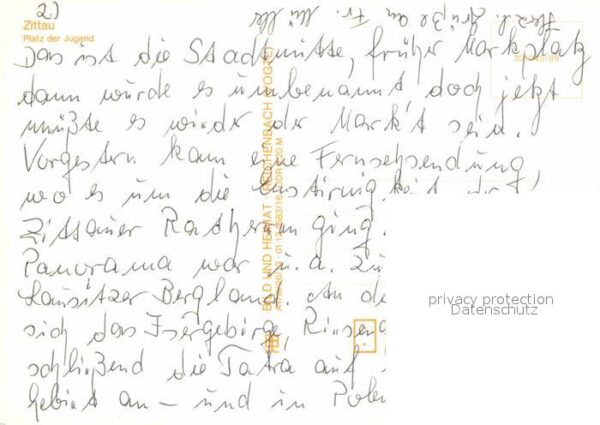 2)
Zittau
Platz der Jugend
Herzl. Grüße an Fr. Müller
Das ist die Stadtmitte, früher Markplatz
dann wurde es umbenannt, doch jetzt
müßte es wieder der Markt sein.
Vorgestern kam eine Fernsehsendung,
wo es um die
Zittauer Ratsherrn ging.
Panorama war u.a. zu
Lausitzer Bergland. An de
sich das Isergebirge, Riesen
schließend die Tatra auf
Gebirt an – und in Polen
BILD UND HEIMAT REICHENBACH (VOGTL)
privacy protection
Datenschutz